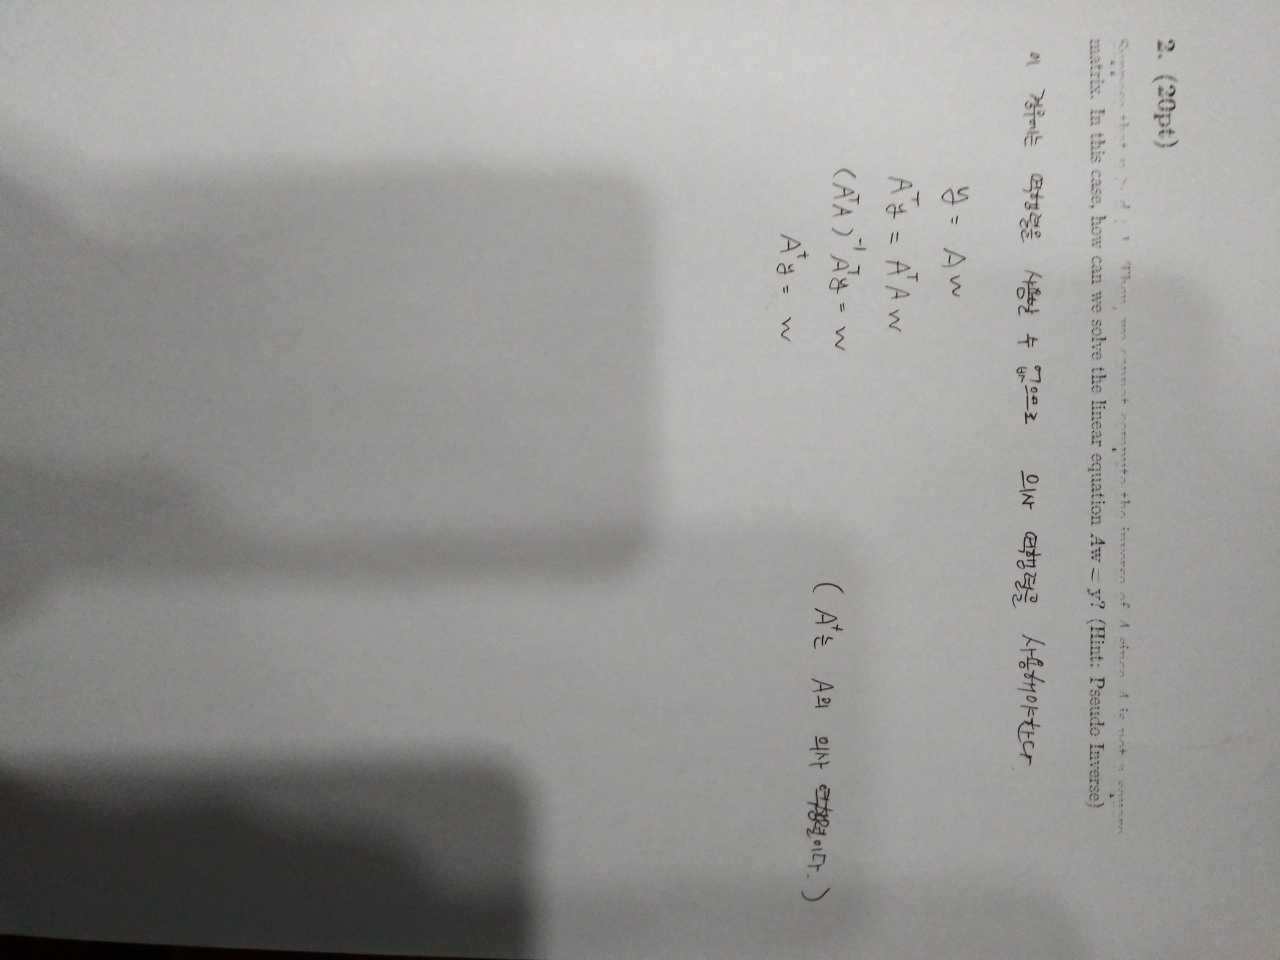 2. (20pt)
Suppose that n > d + 1. Then, we cannot compute the inverse of A since A is not a square
matrix. In this case, how can we solve the linear equation Aw = y? (Hint: Pseudo Inverse)
이 경우에는 역행렬을 사용할 수 없으므로 의사 역행렬을 사용해야한다
y = Aw
Aᵀy = AᵀAw
(AᵀA)⁻¹Aᵀy = w
A⁺y = w (A⁺는 A의 의사 역행렬이다.)